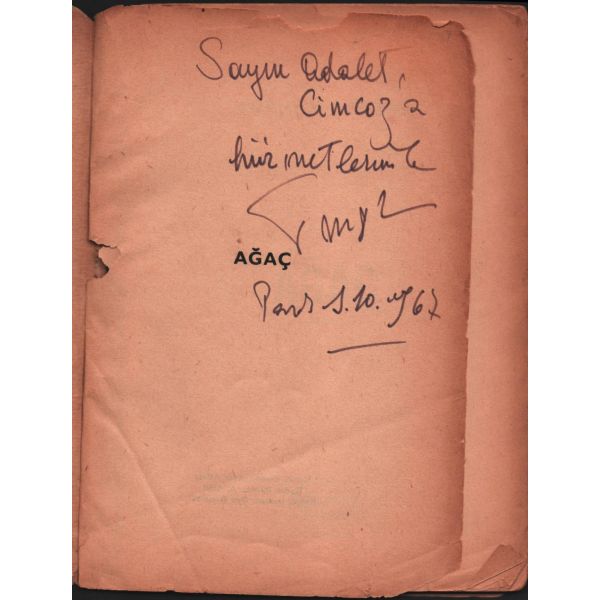 Sayın Adalet
Cimcoz'a
hürmetlerimle
AĞAÇ
Paris 1.10.1967